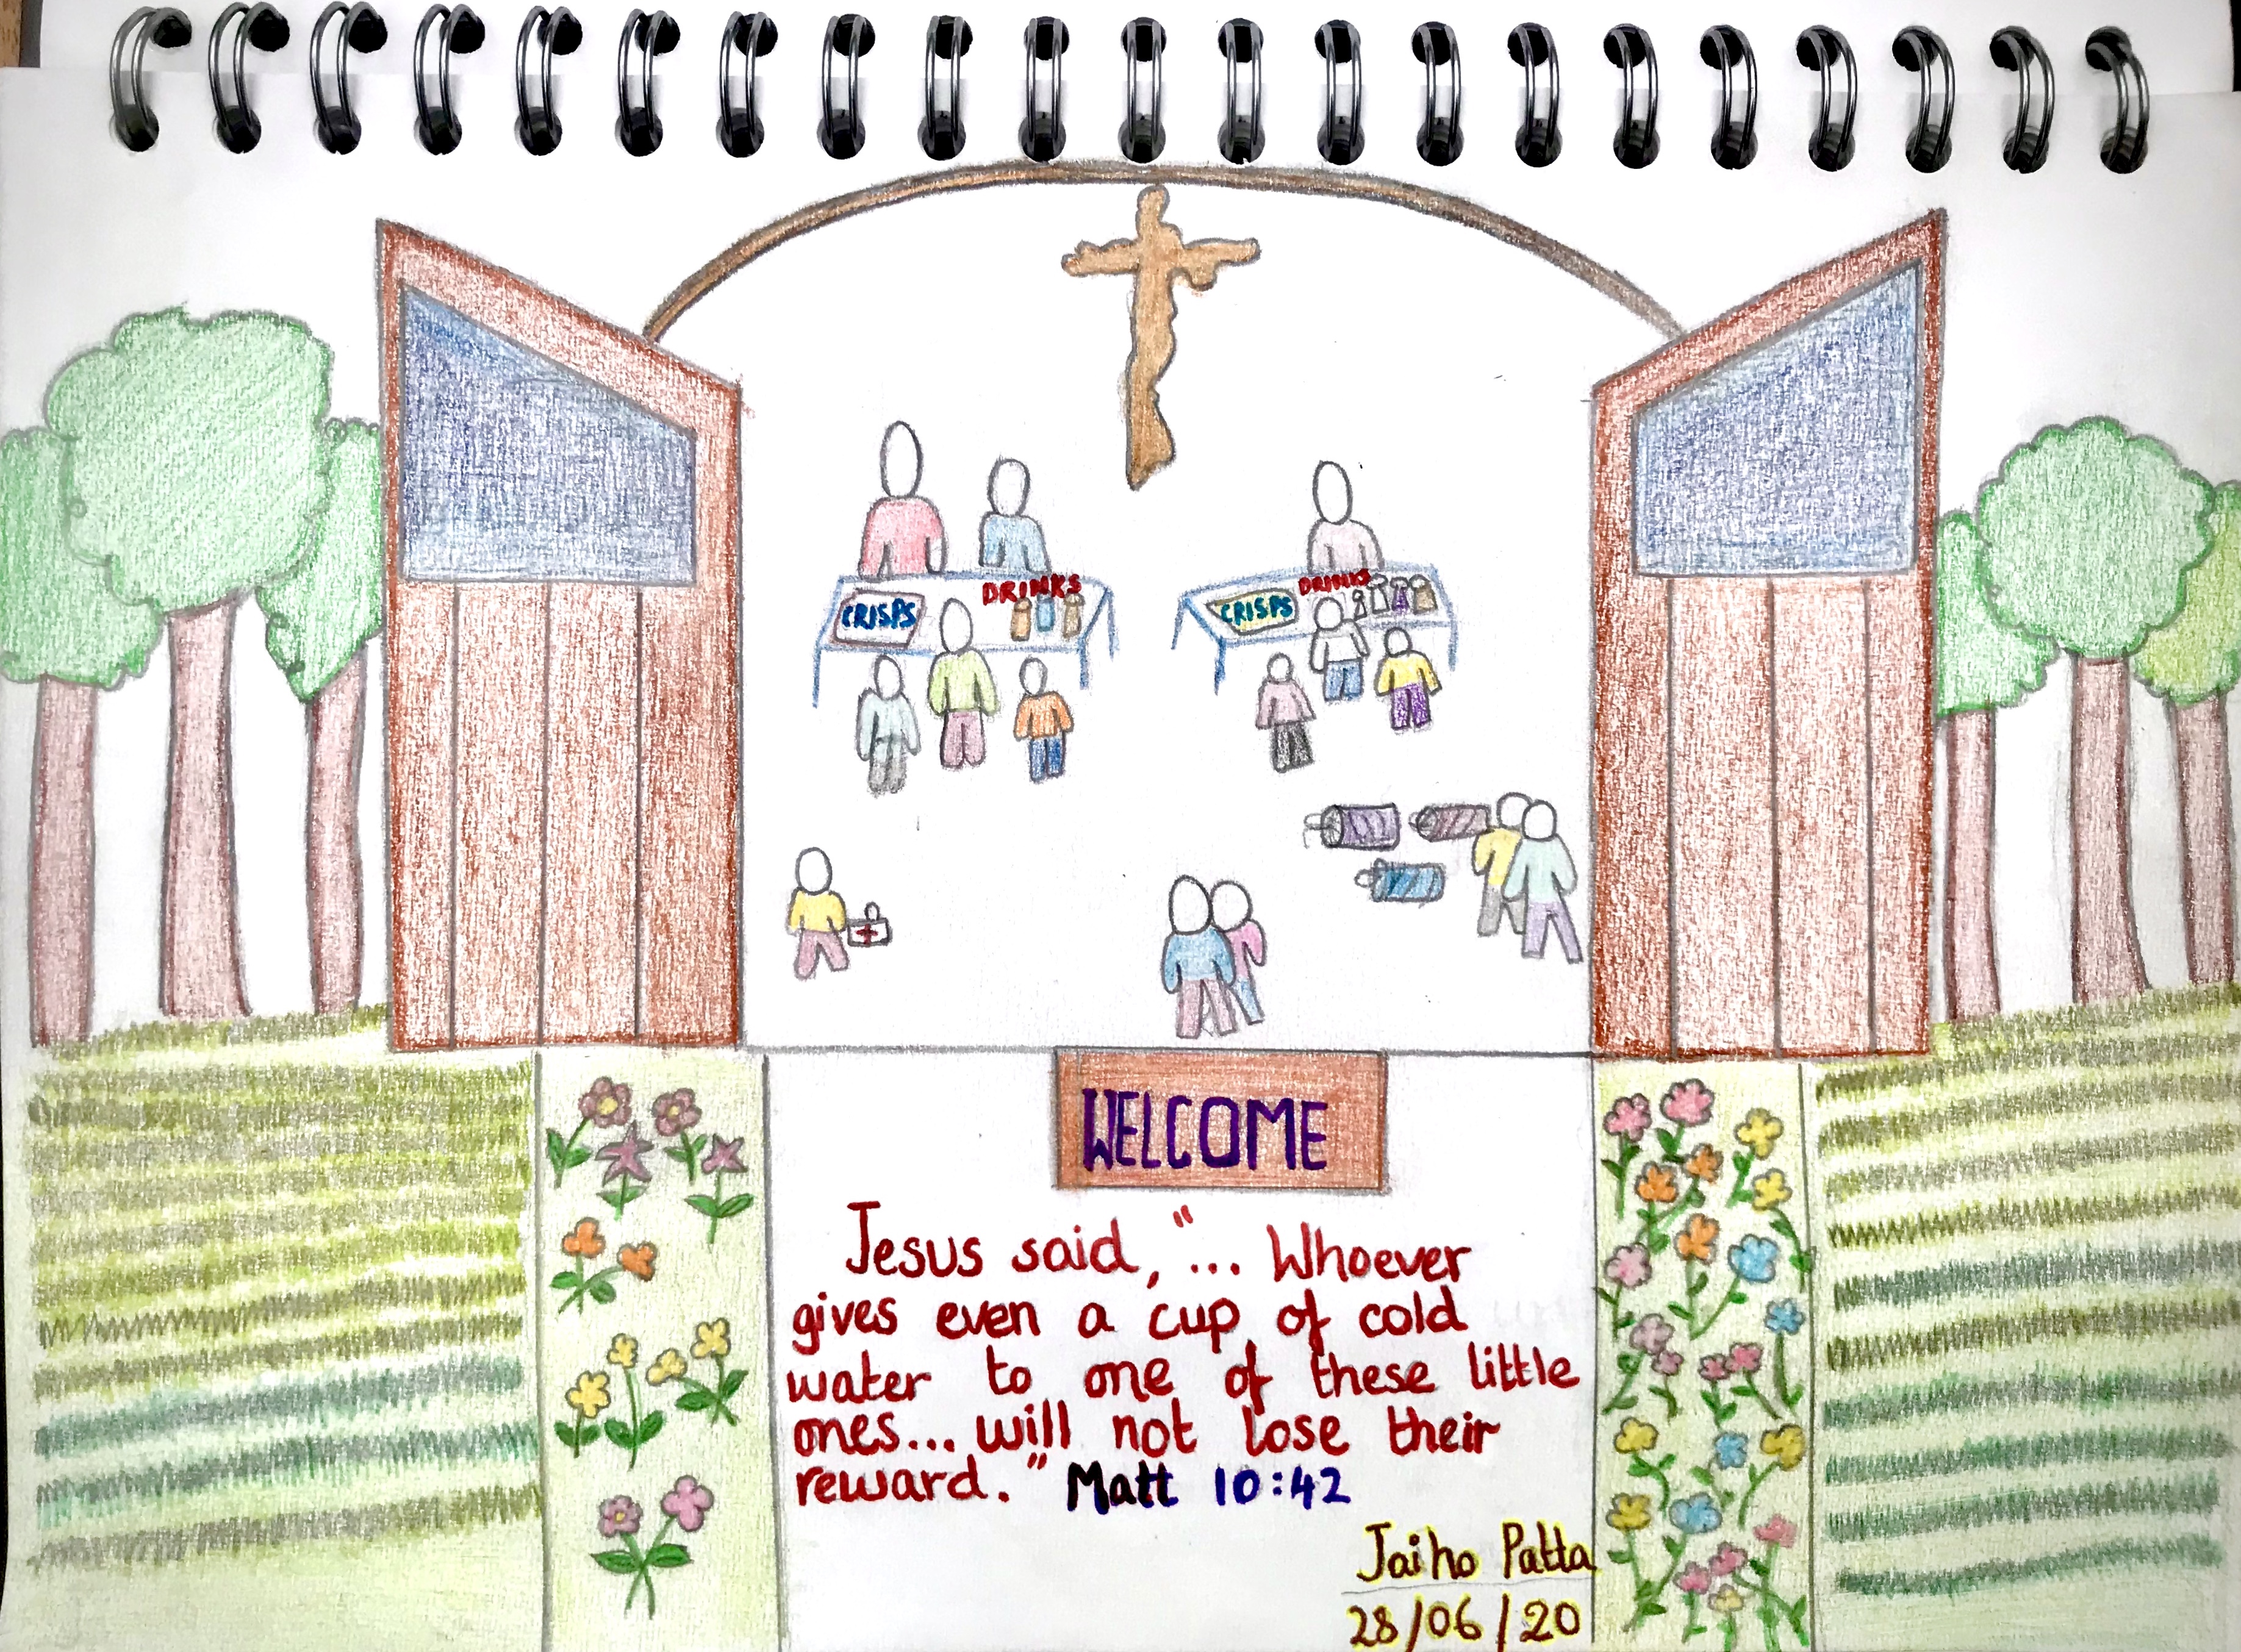 DRINKS
CRISPS
DRINKS
CRISPS
WELCOME
Jesus said, "... Whoever
gives even a cup of cold
water to one of these little
ones... will not lose their
reward." Matt 10:42
Jaiho Patta
28/06/20